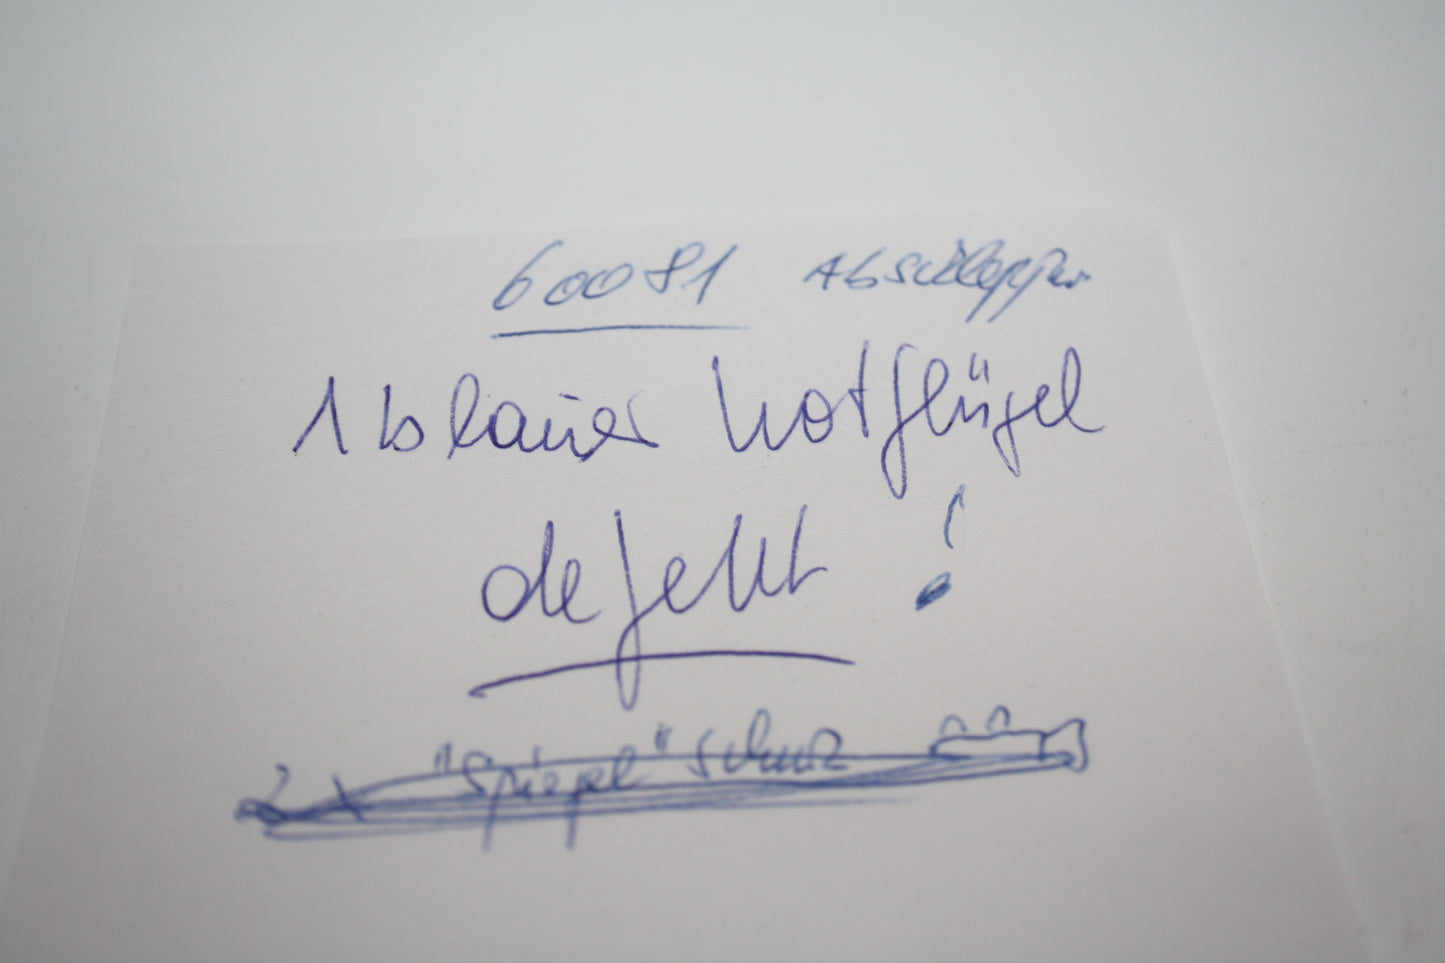 60081 Abschlepper
1 blauer Kotflügel
defekt !
2 x "Spiegel" Schutz